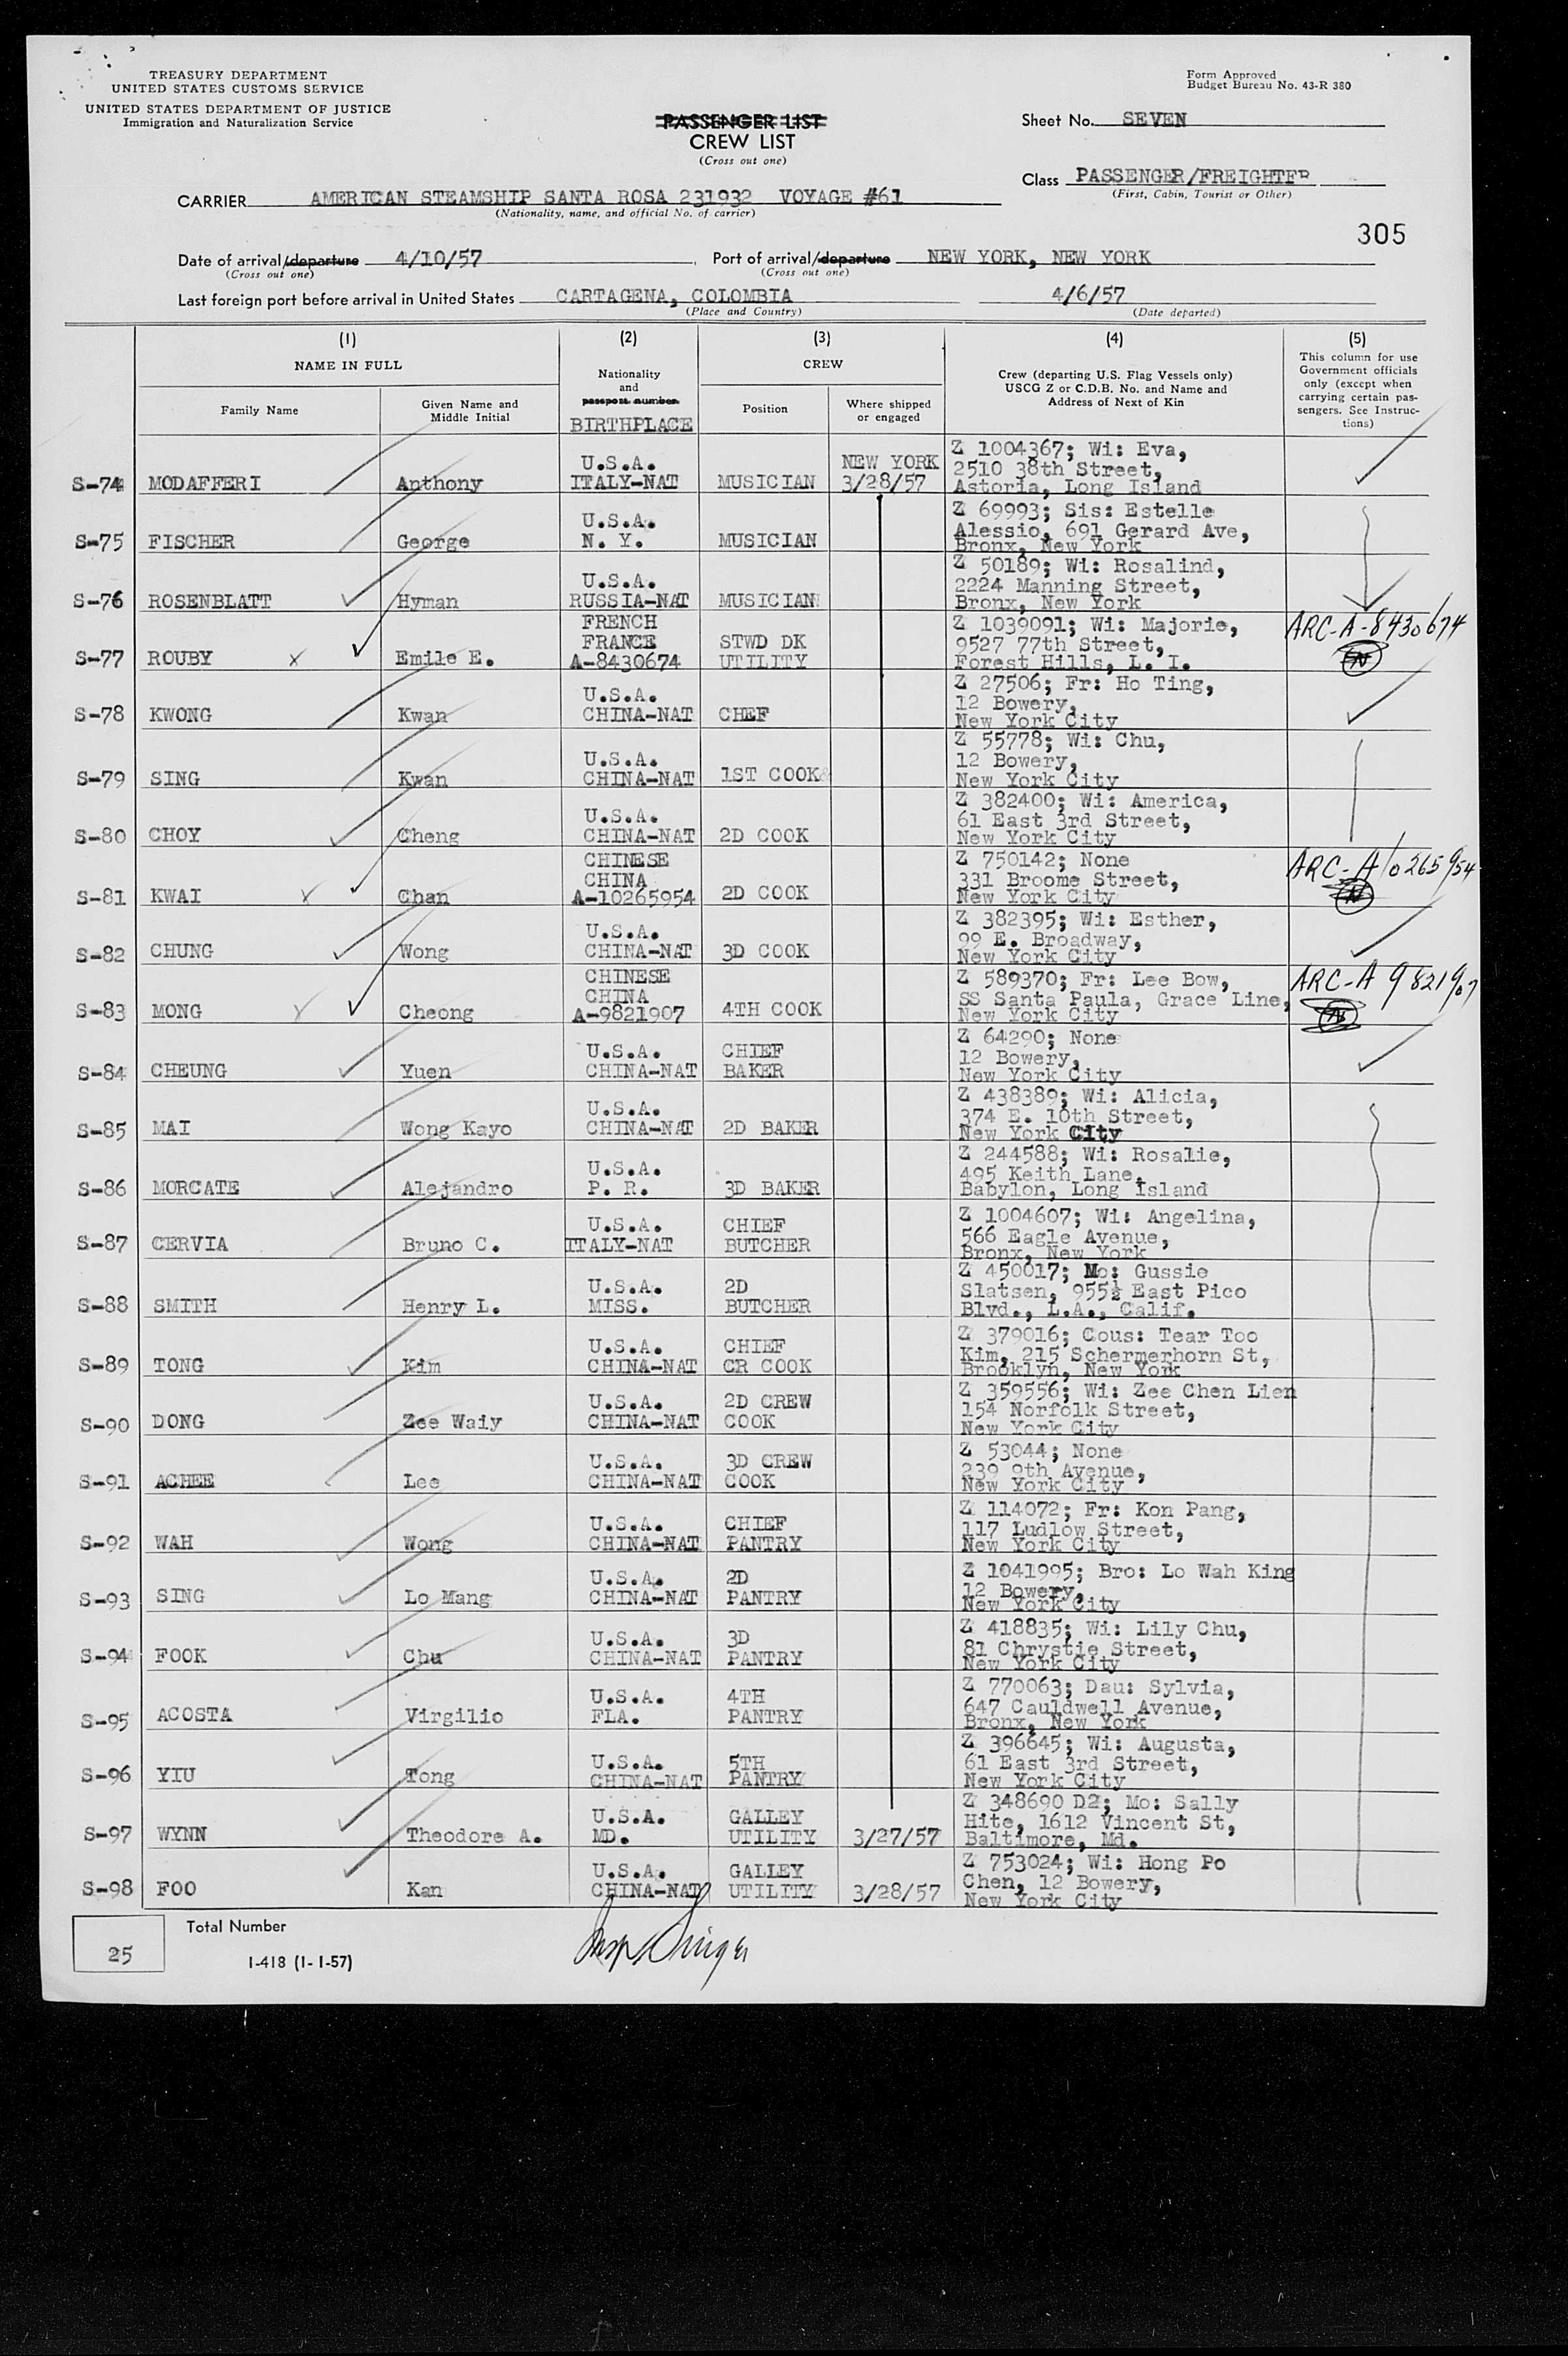 TREASURY DEPARTMENT
UNITED STATES CUSTOMS SERVICE
UNITED STATES DEPARTMENT OF JUSTICE
Immigration and Naturalization Service
Form Approved
Budget Bureau No. 43-R 380
PASSENGER LIST
CREW LIST
(Cross out one)
Sheet No. SEVEN
Class PASSENGER/FREIGHTER
(First, Cabin, Tourist or Other)
CARRIER AMERICAN STEAMSHIP SANTA ROSA 231932 VOYAGE #61
(Nationality, name, and official No. of carrier)
305
Date of arrival/departure 4/10/57 Port of arrival/departure NEW YORK, NEW YORK
(Cross out one) (Cross out one)
Last foreign port before arrival in United States CARTAGENA, COLOMBIA 4/6/57
(Place and Country) (Date departed)
(1) (2) (3) (4) (5)
NAME IN FULL
Family Name
Given Name and
Middle Initial
Nationality
and
passport number
BIRTHPLACE
CREW
Position
Where shipped
or engaged
Crew (departing U.S. Flag Vessels only)
USCG Z or C.D.B. No. and Name and
Address of Next of Kin
This column for use
Government officials
only (except when
carrying certain pas-
sengers. See Instruc-
tions)
U.S.A. NEW YORK Z 1004367; Wi: Eva,
2510 38th Street,
S-74 MODAFFERI Anthony ITALY-NAT MUSICIAN 3/28/57 Astoria, Long Island
U.S.A. Z 69993; Sis: Estelle
Alessio, 691 Gerard Ave,
S-75 FISCHER George N. Y. MUSICIAN Bronx, New York
U.S.A. Z 50189; Wi: Rosalind,
2224 Manning Street,
S-76 ROSENBLATT Hyman RUSSIA-NAT MUSICIAN Bronx, New York
FRENCH Z 1039091; Wi: Majorie, ARC-A-8430674
FRANCE STWD DK 9527 77th Street,
S-77 ROUBY X Emile E. A-8430674 UTILITY Forest Hills, L. I.
U.S.A. Z 27506; Fr: Ho Ting,
12 Bowery,
S-78 KWONG Kwan CHINA-NAT CHEF New York City
U.S.A. Z 55778; Wi: Chu,
12 Bowery,
S-79 SING Kwan CHINA-NAT 1ST COOK New York City
U.S.A. Z 382400; Wi: America,
61 East 3rd Street,
S-80 CHOY Cheng CHINA-NAT 2D COOK New York City
CHINESE Z 750142; None ARC-A10265954
CHINA 331 Broome Street,
S-81 KWAI X Chan A-10265954 2D COOK New York City
U.S.A. Z 382395; Wi: Esther,
99 E. Broadway,
S-82 CHUNG Wong CHINA-NAT 3D COOK New York City
CHINESE Z 589370; Fr: Lee Bow, ARC-A 9821907
CHINA SS Santa Paula, Grace Line,
S-83 MONG X Cheong A-9821907 4TH COOK New York City
U.S.A. CHIEF Z 64290; None
12 Bowery,
S-84 CHEUNG Yuen CHINA-NAT BAKER New York City
U.S.A. Z 438389; Wi: Alicia,
374 E. 10th Street,
S-85 MAI Wong Kayo CHINA-NAT 2D BAKER New York City
U.S.A. Z 244588; Wi: Rosalie,
495 Keith Lane,
S-86 MORCATE Alejandro P. R. 3D BAKER Babylon, Long Island
U.S.A. CHIEF Z 1004607; Wi: Angelina,
566 Eagle Avenue,
S-87 CERVIA Bruno C. ITALY-NAT BUTCHER Bronx, New York
U.S.A. 2D Z 450017; Mo: Gussie
Slatsen, 955½ East Pico
S-88 SMITH Henry L. MISS. BUTCHER Blvd., L.A., Calif.
U.S.A. CHIEF Z 379016; Cous: Tear Too
Kim, 215 Schermerhorn St,
S-89 TONG Kim CHINA-NAT CR COOK Brooklyn, New York
U.S.A. 2D CREW Z 359556; Wi: Zee Chen Lien
154 Norfolk Street,
S-90 DONG Zee Waiy CHINA-NAT COOK New York City
U.S.A. 3D CREW Z 53044; None
239 9th Avenue,
S-91 ACHEE Lee CHINA-NAT COOK New York City
U.S.A. CHIEF Z 114072; Fr: Kon Pang,
117 Ludlow Street,
S-92 WAH Wong CHINA-NAT PANTRY New York City
U.S.A. 2D Z 1041995; Bro: Lo Wah King
12 Bowery,
S-93 SING Lo Mang CHINA-NAT PANTRY New York City
U.S.A. 3D Z 418835; Wi: Lily Chu,
81 Chrystie Street,
S-94 FOOK Chu CHINA-NAT PANTRY New York City
U.S.A. 4TH Z 770063; Dau: Sylvia,
647 Cauldwell Avenue,
S-95 ACOSTA Virgilio FLA. PANTRY Bronx, New York
U.S.A. 5TH Z 396645; Wi: Augusta,
61 East 3rd Street,
S-96 YIU Tong CHINA-NAT PANTRY New York City
U.S.A. GALLEY Z 348690 D2; Mo: Sally
Hite, 1612 Vincent St,
S-97 WYNN Theodore A. MD. UTILITY 3/27/57 Baltimore, Md.
U.S.A. GALLEY Z 753024; Wi: Hong Po
Chen, 12 Bowery,
S-98 FOO Kan CHINA-NAT UTILITY 3/28/57 New York City
Total Number
25
I-418 (1-1-57)